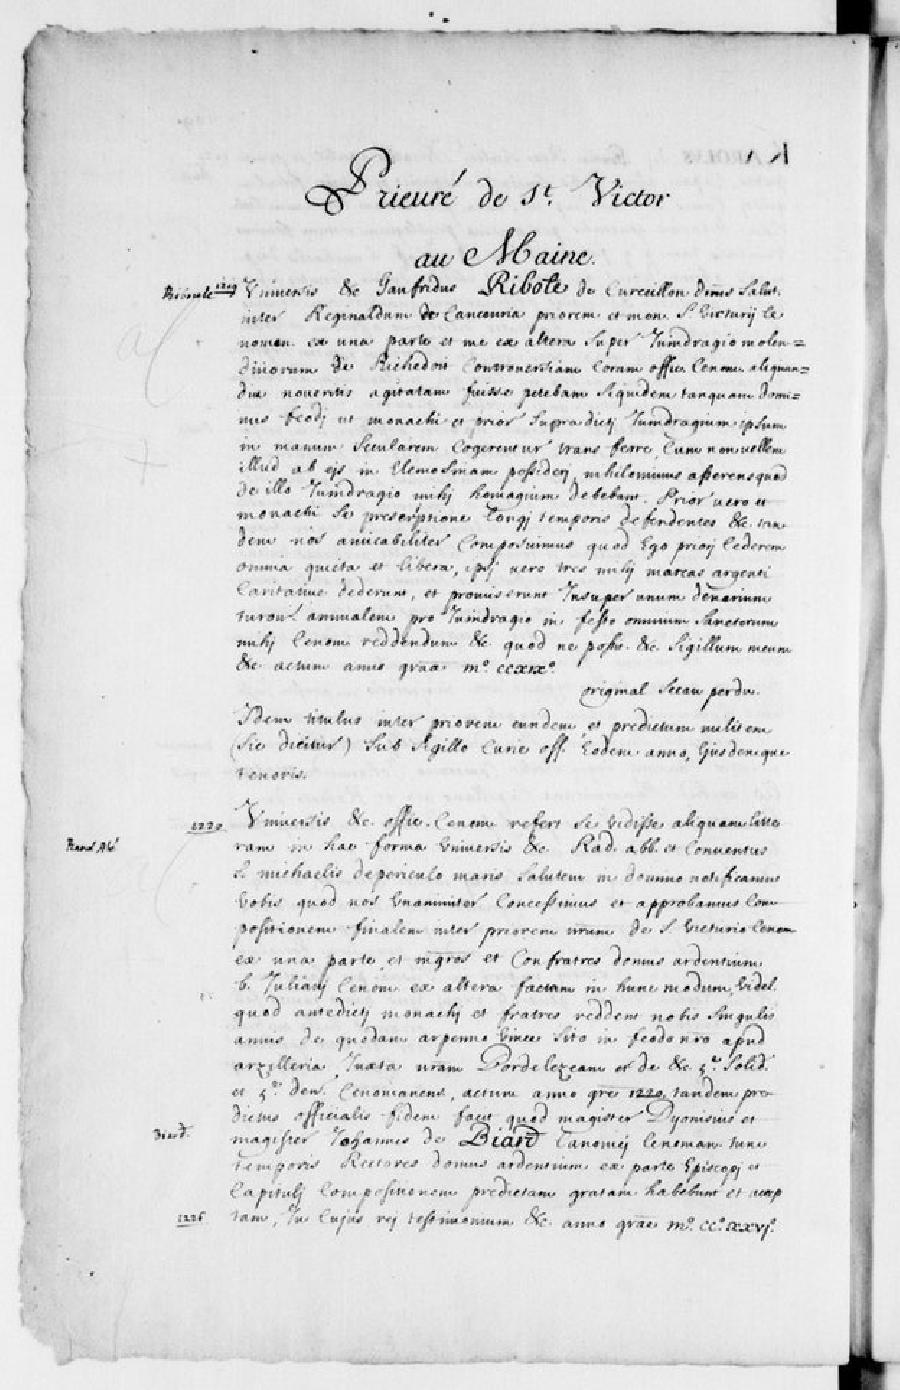 Prieuré de St. Victor
au Maine.
1219 Vniversis &c Gaufridus Ribole de Cureillon dnus Salut.
inter Reginaldum de Cancouria priorem et mon. S. Victurij Ce
noman. ex una parte et me ex altera super Jumdragio molen=
dinorum de Richedoit Controversiam Coram offic. Cenom. aliquan=
diu noveritis agitatam fuisse petebam siquidem tanquam domi=
nus feodj ut monachi et prior supradictj Jumdragium ipsum
in manum secularem Cogerentur transferre Cum non vellem
illud ab ejs in Elemosinam possiderj, nihelominus asserens quod
de illo Jumdragio mihj homagium debebant. Prior vero et
monachi se prescriptione Longj temporis defendentes &c. tan
dem nos amicabiliter Composuimus quod Ego priorj Cederem
omnia quieta et libera, ipsj vero tres mihj marcas argenti
Caritative dederunt, et promiserunt Insuper unum denarium
turon. annualem pro Jumdragio in festo omnium Sanctorum
mihj Cenom. reddendum &c. quod ne posset. &c. Sigillum meum
&c actum anno graa mo. ccxixo.
original sceau perdu.
Idem titulus inter priorem eundem et predictum militem
(sic dicitur) sub sigillo Curie off. Eodem anno, Ejusdemque
tenoris.
1220 Vniversis &c. offic. Cenom. refert se vidisse aliquam litte
ram in hac forma Vniversis &c. Rad. abb. et Conventus
S. michaelis de periculo maris Salutem in domino notificamus
vobis quod nos Vnanimiter Concessimus et approbamus Com
positionem finalem inter priorem nrum de S. Victurio Cenom
ex una parte et mgros et Confratres domus ardentium
b. Julianj Cenom. ex altera factam in hunc modum, videl.
quod antedictj monachj et fratres reddent nobis singulis
annis de quodam arpenno vinee sito in feodo nro apud
arzilleria Juxta nram Bordelezeam et de &c 5. Solid.
et 5. den. Cenomanens, actum anno gre 1220. tandem pre
dictus officialis fidem facit quod magister Dyonisius et
Biard.
magister Johannes de Biard Canonicj Cenoman. tunc
temporis Rectores domus ardentium ex parte Episcopj et
Capitulj Compositionem predictam gratam habebunt et accep
1226 tam, In Cujus rej testimonium &c. anno grae mo. cco. xxvjo.